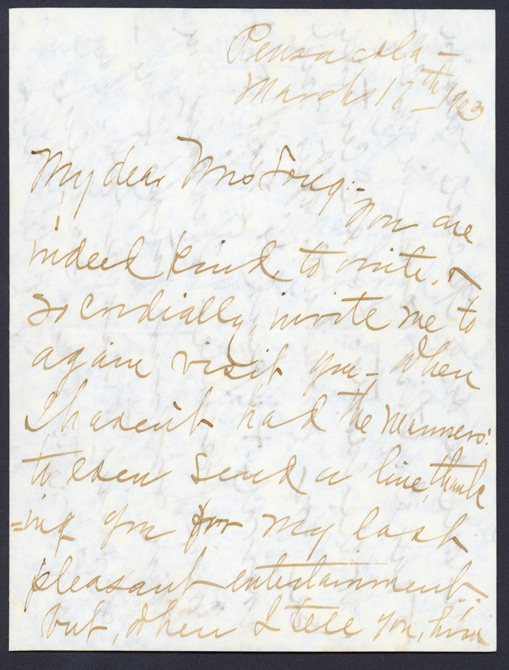 Pensacola –
March 10th 1903
My dear Mrs Long: –
You are
indeed kind, to write, &
so cordially, invite me to
again visit you – when
I havent had the manners:
to even send a line, thank
=ing you for my last
pleasant entertainment.
but, when I tell you, how